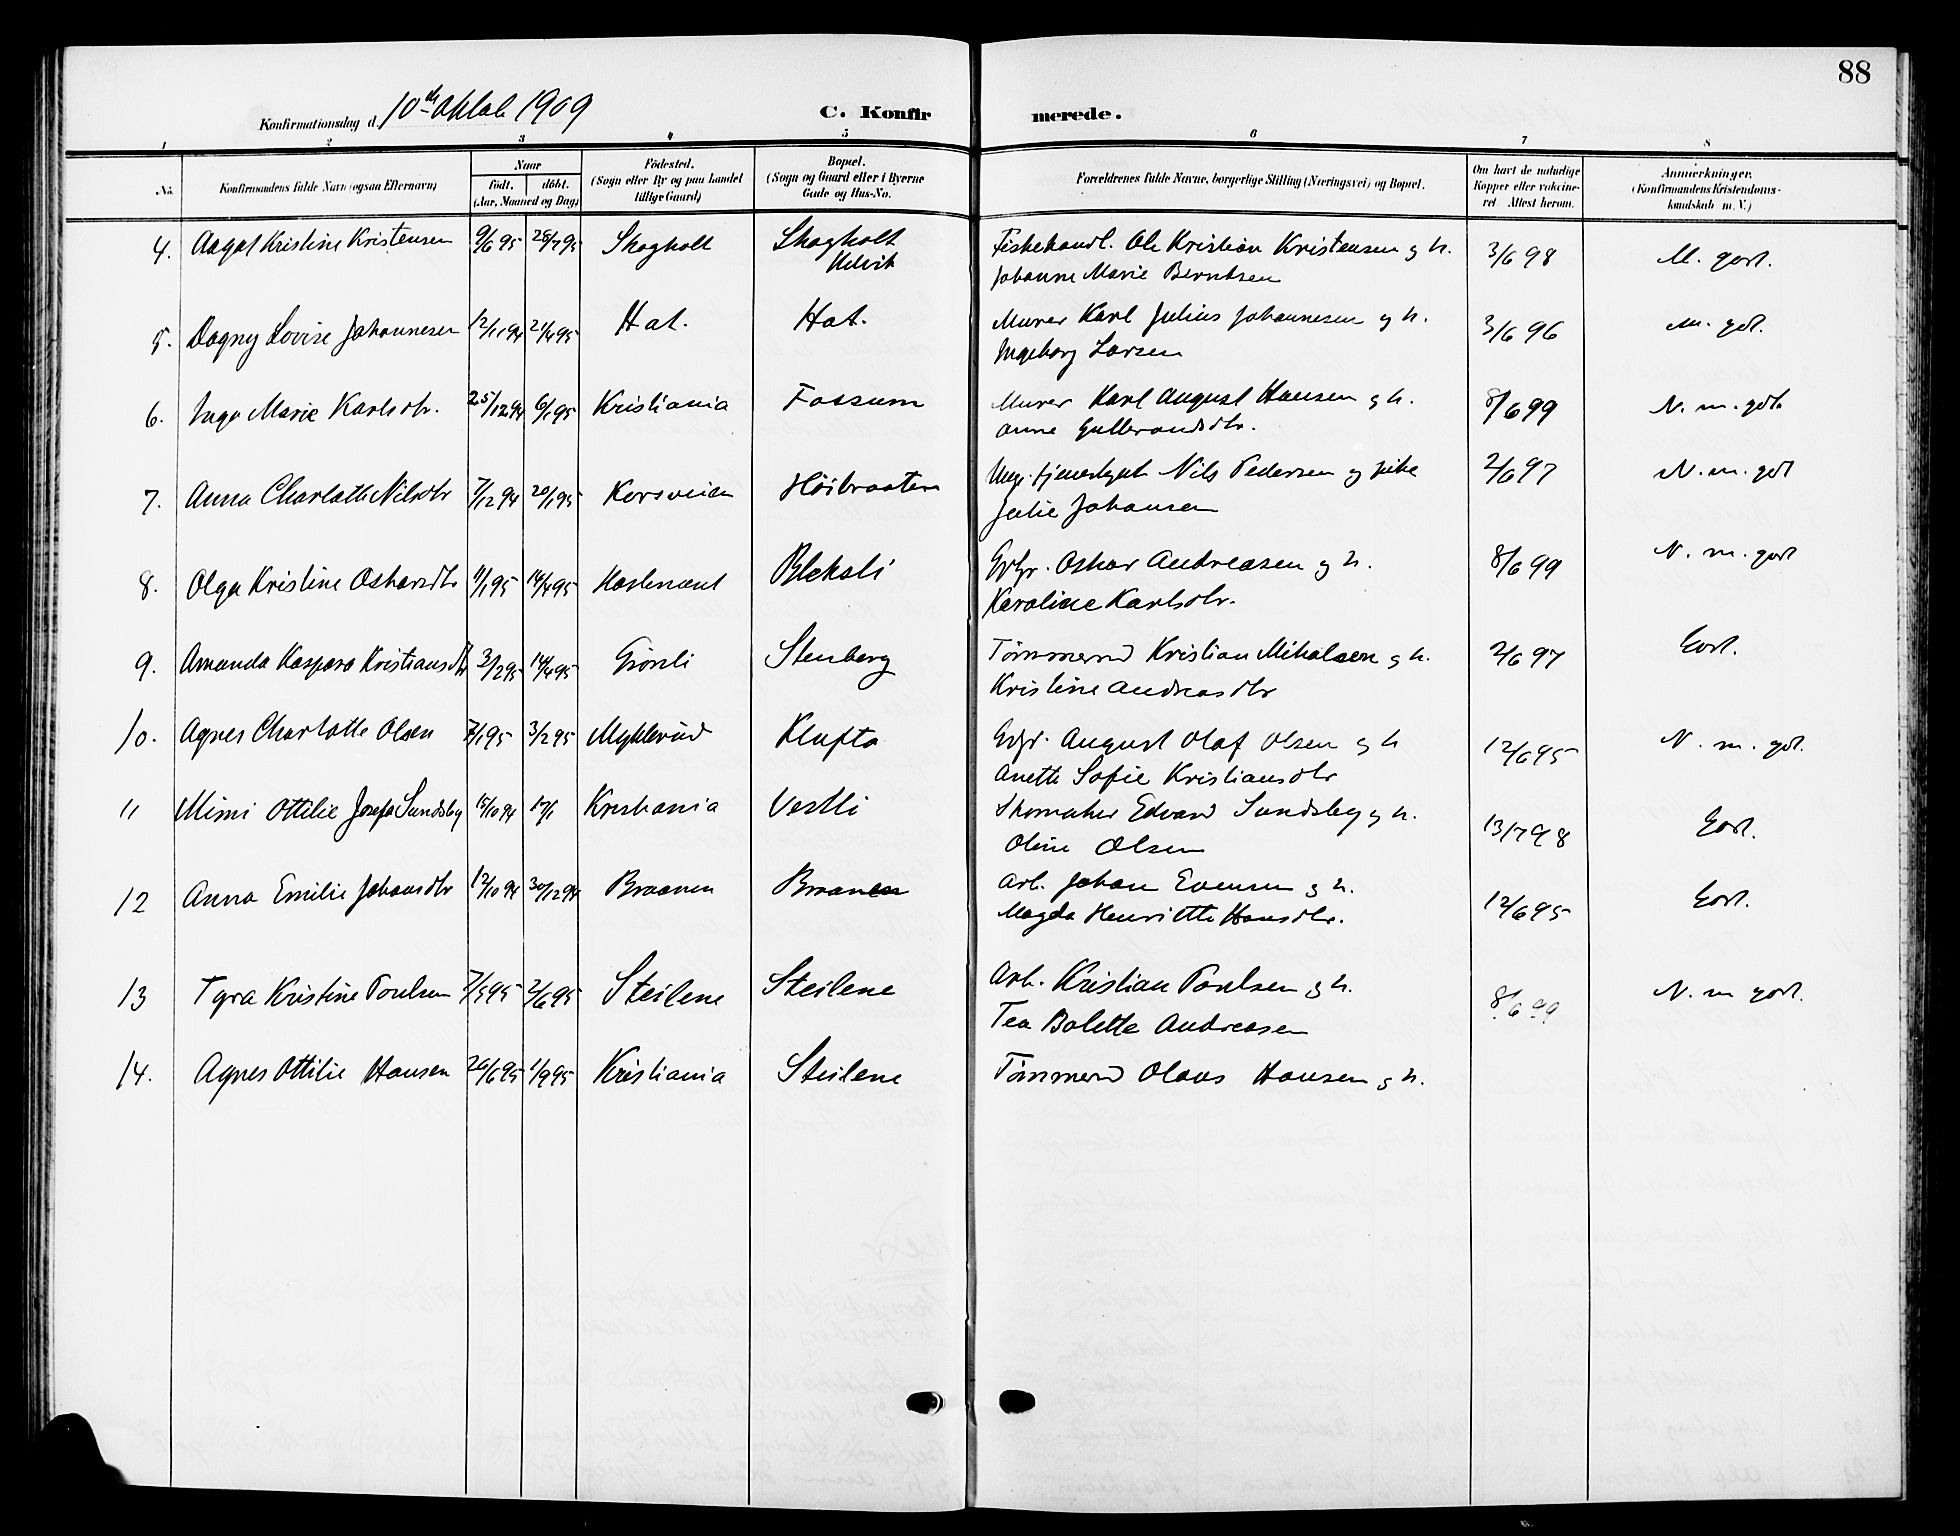 88
Konfirmationsdag d. 10de Oktob 1909 C. Konfirmerede.
1 2 3 4 5 6 7 8
No. Konfirmandens fulde Navn (ogsaa Efternavn) Naar født, døbt. (Aar, Maaned og Dag) Fødested. (Sogn eller By og paa Landet tillige Gaard) Bopæl. (Sogn og Gaard eller i Byerne Gade og Hus-No. Forældrenes fulde Navne, borgerlige Stilling (Næringsvei) og Bopæl. Om havt de naturlige Kopper eller vaccineret Attest herom. Anmerkninger. (Konfirmandens Kristendomskundskab m. V.)
4. Aagot Kristine Kristensen 9/6 95 28/7 95 Skogholt Skogholt Fiskehandl. Ole Kristian Kristensen og h. 3/6 98 M. godt.
Johanne Marie Berntsen
5. Dagny Lovise Johannesen 12/11 94 21/4 95 Hat. Hat. Murer Karl Julius Johannesen og h. 3/6 96 M. gdt.
Ingeborg Larsen
6. Inga Marie Karlsdtr. 25/12 94 6/1 95 Kristiania Fossum Murer Karl August Hansen og h. 8/6 99 N. m. gdt.
Anne Gulbrandsdtr.
7. Anna Charlotte Nilsdtr 7/12 94 20/1 95 Korsveien Høibraaten Ung. tjenestegut Nils Pedersen og pike 2/6 97 N. m. gdt
Julie Johansen
8. Olga Kristine Oskarsdtr 11/1 95 14/4 95 Bleksli Grbr. Oskar Andreasen og h. 8/6 99 N. m. godt
Karoline Karlsdtr.
9. Amanda Kaspara Kristiansdtr 3/2 95 14/4 95 Grønli Stenberg Tømmermd Kristian Mikalsen og h. 2/6 97 Godt.
Kristine Andreasdtr
10. Agnes Charlotte Olsen 7/1 95 3/2 95 Myklerud Klufta Grbr. August Olaf Olsen og h 12/6 95 N. m. gdt.
Anette Sofie Kristiansdtr
11 Mimi Ottilie Josefa Sundsby 15/10 94 17/1 Kristiania Vestli Skomaker Edvard Sundsby og h. 13/7 98 Godt.
Oline Olsen
12 Anna Emilie Johansdtr 12/10 94 30/12 94 Braanen Braanen Arb. Johan Evensen og h. 12/6 95 Godt.
Magda Henriette Hansdtr.
13 Tyra Kristine Poulsen 7/5 95 2/6 95 Steilene Steilene Arb. Kristian Poulsen og h. 8/6 99 N. m godt.
Tea Bolette Andreasen
14. Agnes Ottilie Hansen 26/6 95 1/9 95 Kristiania Steilene Tømmermd Olaus Hansen og h.